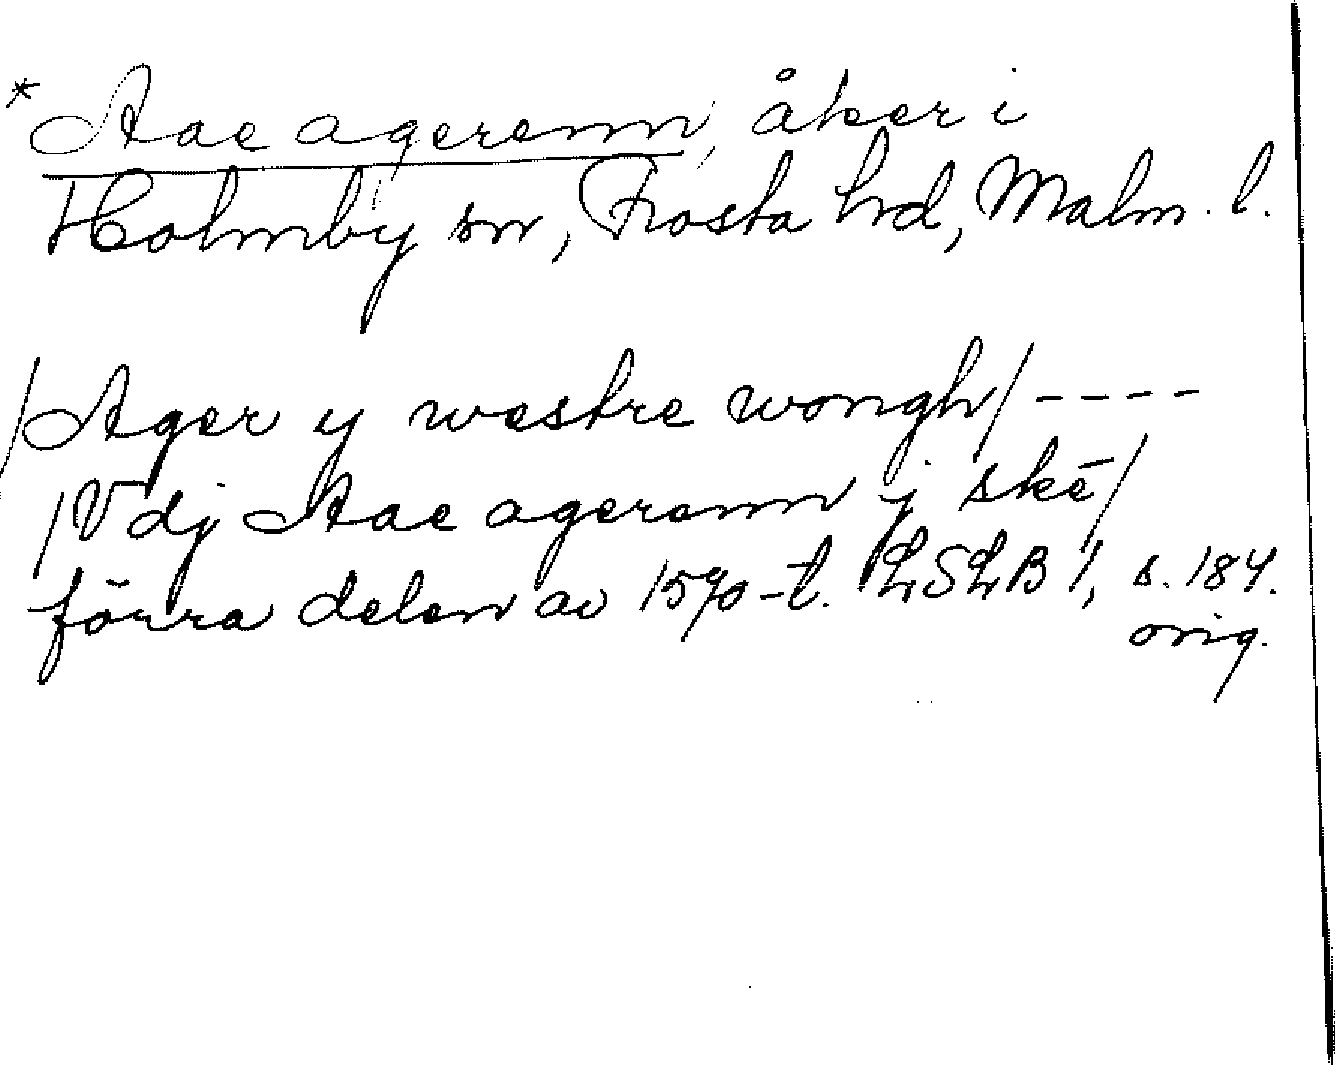 *Aae agerenn, åker i
Holmby sn, Frosta hd, Malm. l.
/Ager y westre wongh/ ----
/V dj Aae agerenn j skē/
förra delen av 1570-t. LSLB 1, s. 184.
orig.